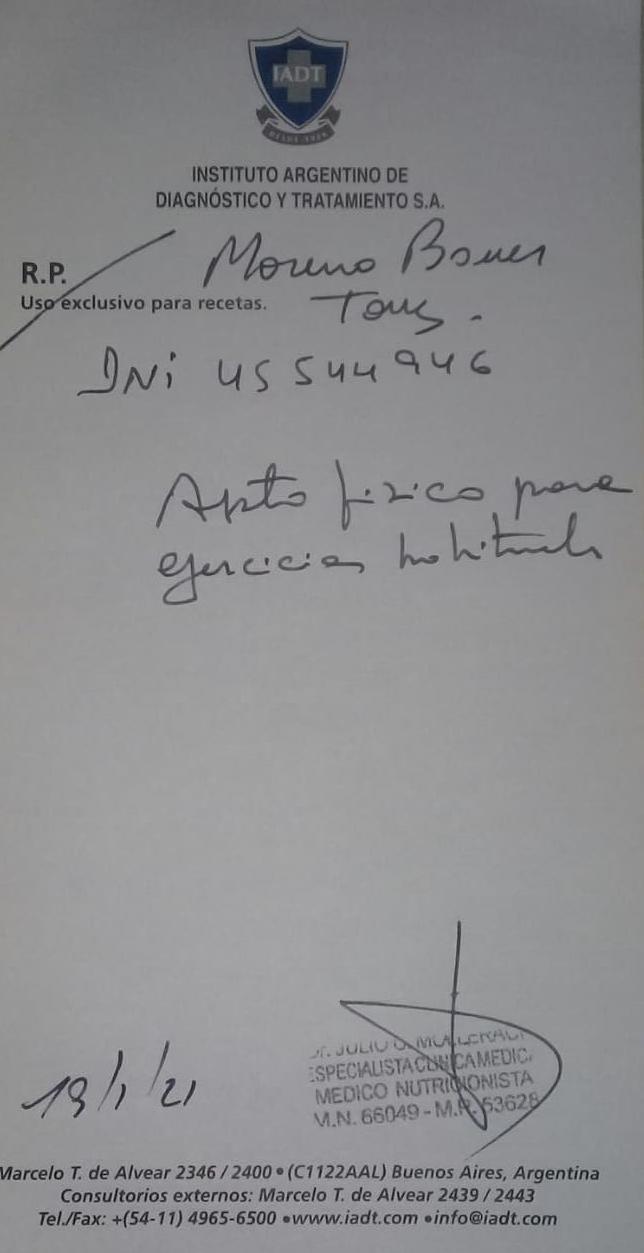 IADT
DESDE
INSTITUTO ARGENTINO DE
DIAGNÓSTICO Y TRATAMIENTO S.A.
R.P.
Moreno
Uso exclusivo para recetas.
DNi 45544946
Apto fisico para
ejercicios habituales
19/1/21
Dr. JULIO
ESPECIALISTA CLINICA MEDIC.
MEDICO NUTRICIONISTA
M.N. 66049 - M.P. 53628
Marcelo T. de Alvear 2346 / 2400 • (C1122AAL) Buenos Aires, Argentina
Consultorios externos: Marcelo T. de Alvear 2439 / 2443
Tel./Fax: +(54-11) 4965-6500 •www.iadt.com •info@iadt.com